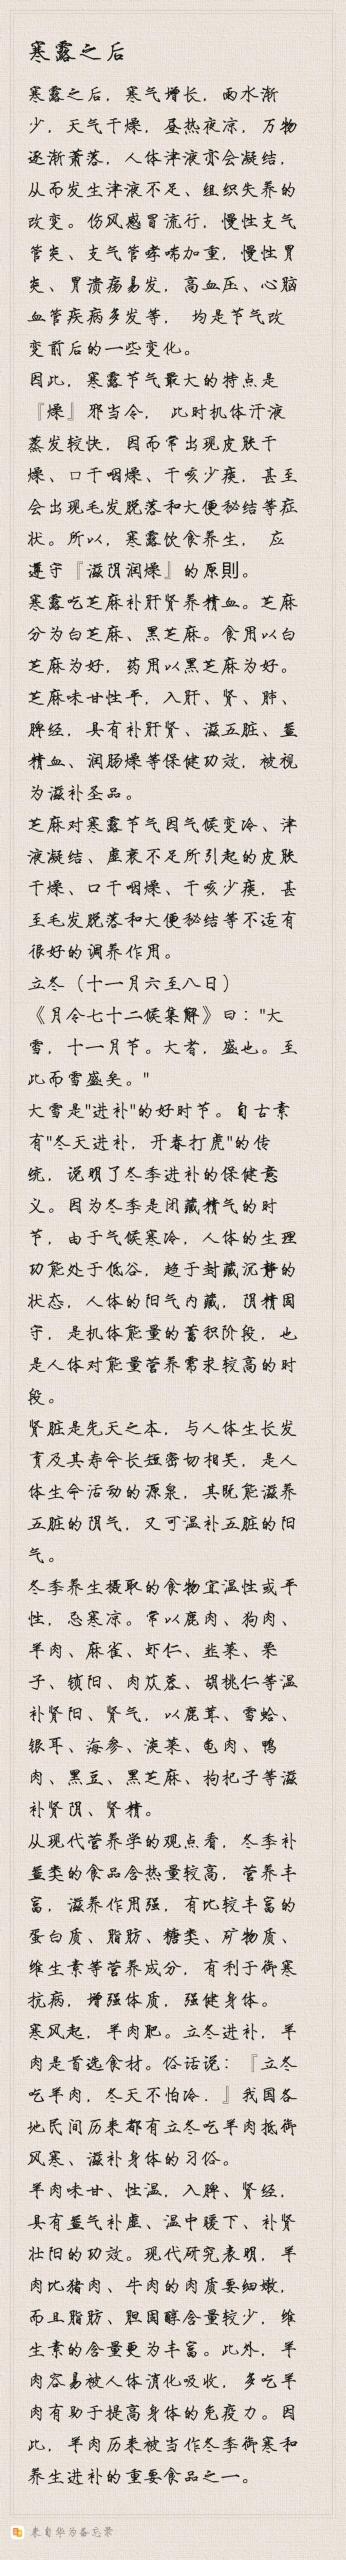 寒露之后
寒露之后，寒气增长，雨水渐
少，天气干燥，昼热夜凉，万物
逐渐萧落，人体津液亦会凝结，
从而发生津液不足、组织失养的
改变。伤风感冒流行，慢性支气
管炎、支气管哮喘加重，慢性胃
炎、胃溃疡易发，高血压、心脑
血管疾病多发等， 均是节气改
变前后的一些变化。
因此，寒露节气最大的特点是
『燥』邪当令， 此时机体汗液
蒸发较快，因而常出现皮肤干
燥、口干咽燥、干咳少痰，甚至
会出现毛发脱落和大便秘结等症
状。所以，寒露饮食养生， 应
遵守『滋阴润燥』的原則。
寒露吃芝麻补肝肾养精血。芝麻
分为白芝麻、黑芝麻。食用以白
芝麻为好，药用以黑芝麻为好。
芝麻味甘性平，入肝、肾、肺、
脾经，具有补肝肾、滋五脏、益
精血、润肠燥等保健功效，被视
为滋补圣品。
芝麻对寒露节气因气候变冷、津
液凝结、虚衰不足所引起的皮肤
干燥、口干咽燥、干咳少痰，甚
至毛发脱落和大便秘结等不适有
很好的调养作用。
立冬（十一月六至八日）
《月令七十二候集解》曰："大
雪，十一月节。大者，盛也。至
此而雪盛矣。"
大雪是"进补"的好时节。自古素
有"冬天进补，开春打虎"的传
统，说明了冬季进补的保健意
义。因为冬季是闭藏精气的时
节，由于气候寒冷，人体的生理
功能处于低谷，趋于封藏沉静的
状态，人体的阳气内藏，阴精固
守，是机体能量的蓄积阶段，也
是人体对能量营养需求较高的时
段。
肾脏是先天之本，与人体生长发
育及其寿命长短密切相关，是人
体生命活动的源泉，其既能滋养
五脏的阴气，又可温补五脏的阳
气。
冬季养生摄取的食物宜温性或平
性，忌寒凉。常以鹿肉、狗肉、
羊肉、麻雀、虾仁、韭菜、栗
子、锁阳、肉苁蓉、胡桃仁等温
补肾阳、肾气，以鹿茸、雪蛤、
银耳、海参、淡菜、龟肉、鸭
肉、黑豆、黑芝麻、枸杞子等滋
补肾阴、肾精。
从现代营养学的观点看，冬季补
益类的食品含热量较高，营养丰
富，滋养作用强，有比较丰富的
蛋白质、脂肪、糖类、矿物质、
维生素等营养成分，有利于御寒
抗病，增强体质，强健身体。
寒风起，羊肉肥。立冬进补，羊
肉是首选食材。俗话说：『立冬
吃羊肉，冬天不怕冷．』我国各
地民间历来都有立冬吃羊肉抵御
风寒、滋补身体的习俗。
羊肉味甘、性温，入脾、肾经，
具有益气补虚、温中暖下、补肾
壮阳的功效。现代研究表明，羊
肉比猪肉、牛肉的肉质要细嫩，
而且脂肪、胆固醇含量较少，维
生素的含量更为丰富。此外，羊
肉容易被人体消化吸收，多吃羊
肉有助于提高身体的免疫力。因
此，羊肉历来被当作冬季御寒和
养生进补的重要食品之一。
来自华为备忘录